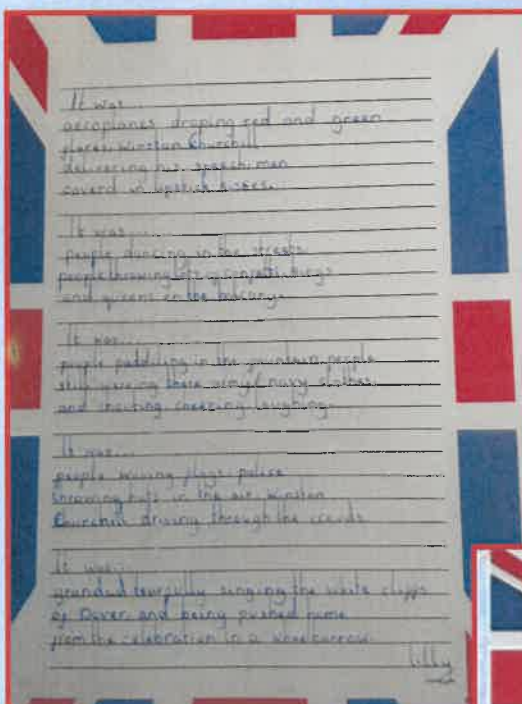 It was...
aeroplanes droping red and green
flares. Winston Churchill
delivering his speech. men
coverd in lipstick kisses.
It was.....
people dancing in the streets
people throwing lots of confetti. kings
and queens on the balcany.
It was.....
people paddling in the fountain. people
still wering there army/navy clothes.
and cheering laughing.
It was...
people waving flags. police
throwing hats in the air. Winston
Churchill driving through the crowds
It was...
grandad tearfully singing the white cliffs
of Dover. and being pushed home
from the celebration in a
lilly